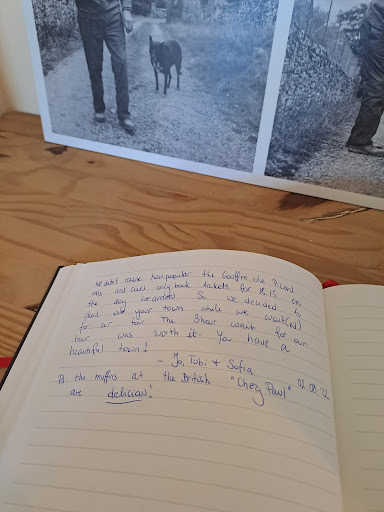 We didn't realise how popular the Gouffre de Padirac
was and could only book tickets for 18.15 on
the day we arrived. So we decided to
check out your town while we wait(ed)
for our tour. The 3 hour wait for our
tour was worth it. You have a
beautiful town!
- Jo, Tobi + Sofia
Ps the muffins at the British "Chez Paul" 02.08.22
are delicious!